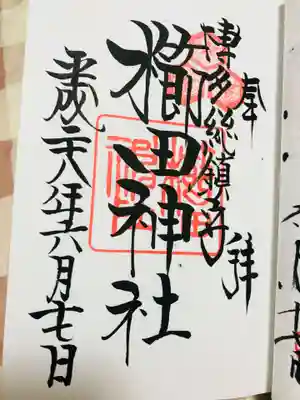 奉拝
博多総鎮守
櫛田神社
平成二十八年六月十七日